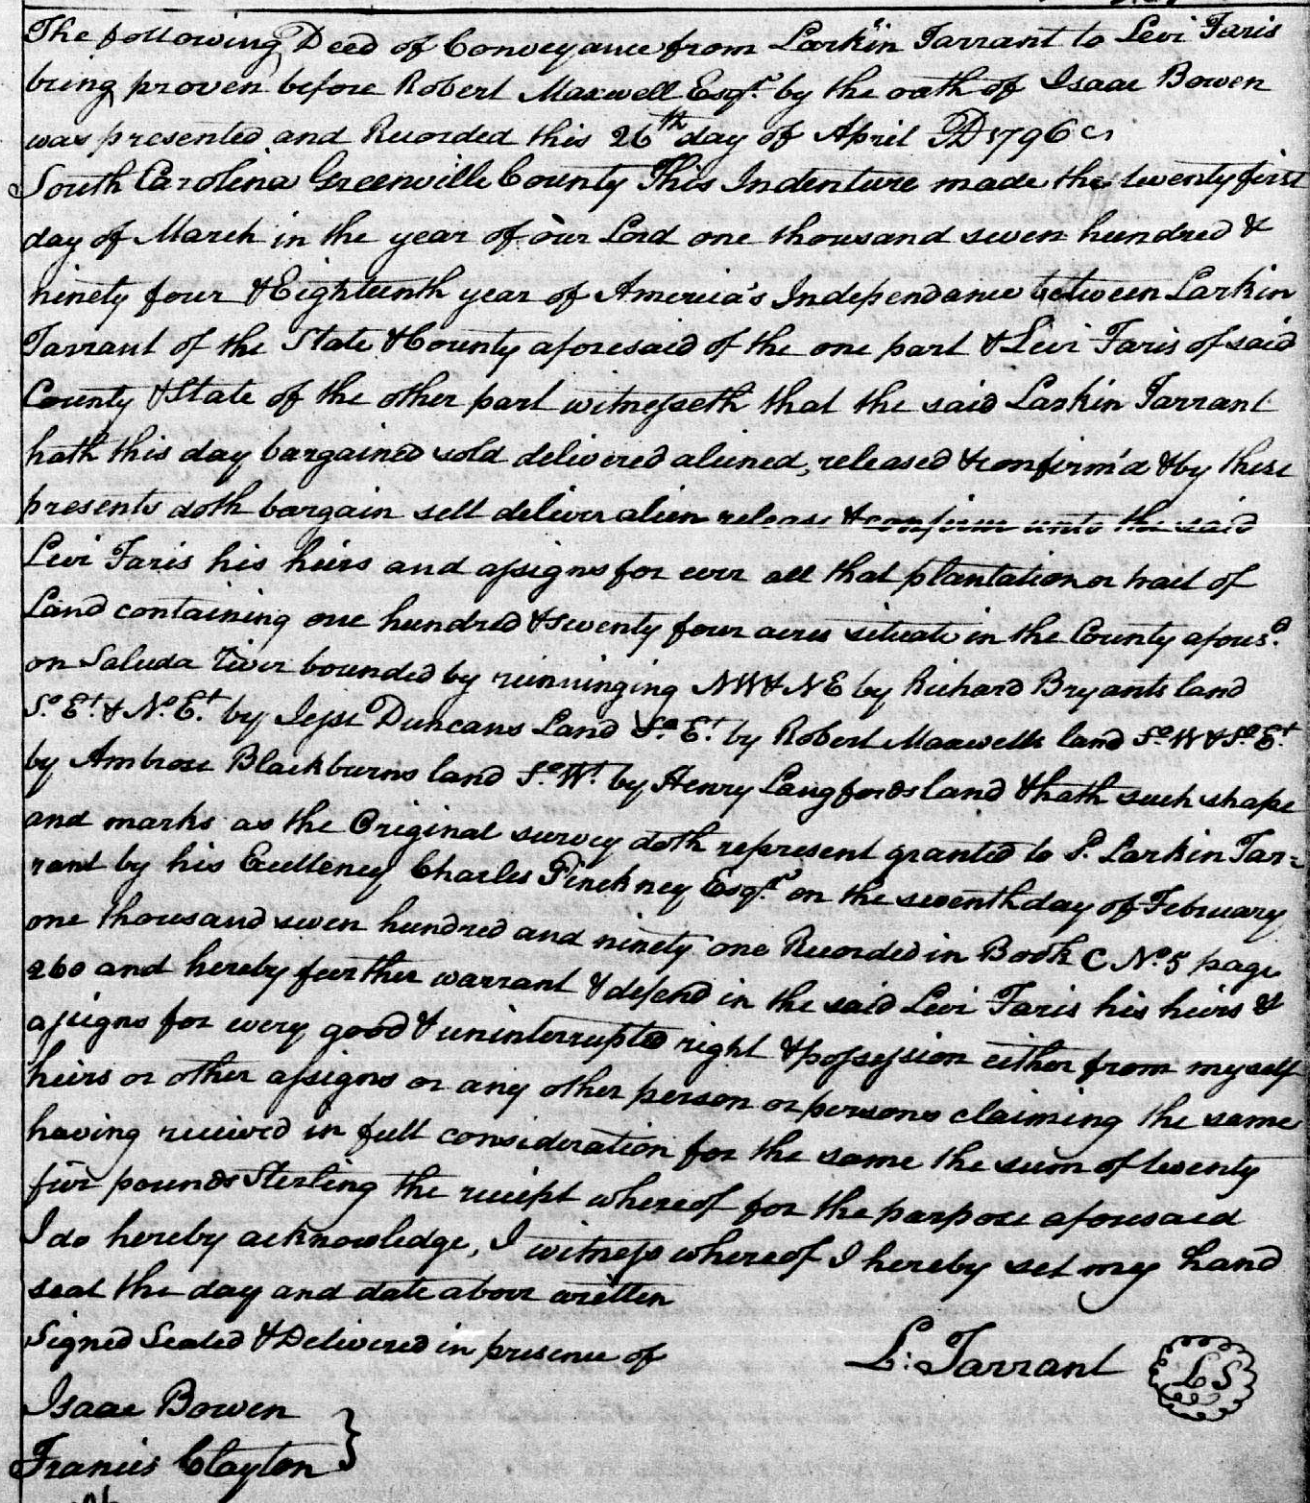 The following Deed of Conveyance from Larkin Tarrant to Levi Faris
being proven before Robert Maxwell Esqr. by the oath of Isaac Bowen
was presented and Recorded this 26th day of April AD 1796
South Carolina Greenville County This Indenture made the twenty first
day of March in the year of our Lord one thousand seven hundred &
ninety four & Eighteenth year of America's Independance between Larkin
Tarrant of the State & County aforesaid of the one part & Levi Faris of said
County & State of the other part witnesseth that the said Larkin Tarrant
hath this day bargained sold delivered aliened, released & confirm'd & by these
presents doth bargain sell deliver alien release & confirm unto the said
Levi Faris his heirs and assigns for ever all that plantation or tract of
Land containing one hundred & seventy four acres situate in the County afores.d
on Saluda River bounded by runninging NW & NE by Richard Bryants land
So. Et. & No. Et. by Jesse Duncans Land So. Et. by Robert Maxwells land So. W & So. Et.
by Ambrose Blackburns land So. Wt. by Henry Langfords land & hath such shape
and marks as the Original survey doth represent granted to S. Larkin Tar=
rant by his Excellency Charles Pinckney Esqr. on the seventh day of February
one thousand seven hundred and ninety one Recorded in Book C No. 5 page
260 and hereby further warrant & defend in the said Levi Faris his heirs &
assigns for every good & uninterrupted right & possession either from myself
heirs or other assigns or any other person or persons claiming the same
having received in full consideration for the same the sum of twenty
five pounds Sterling the receipt whereof for the purpose aforesaid
I do hereby acknowledge, I witness whereof I hereby set my hand
seal the day and date above written
Signed Sealed & Delivered in presence of
L: Tarrant LS
Isaac Bowen
Francis Clayton }